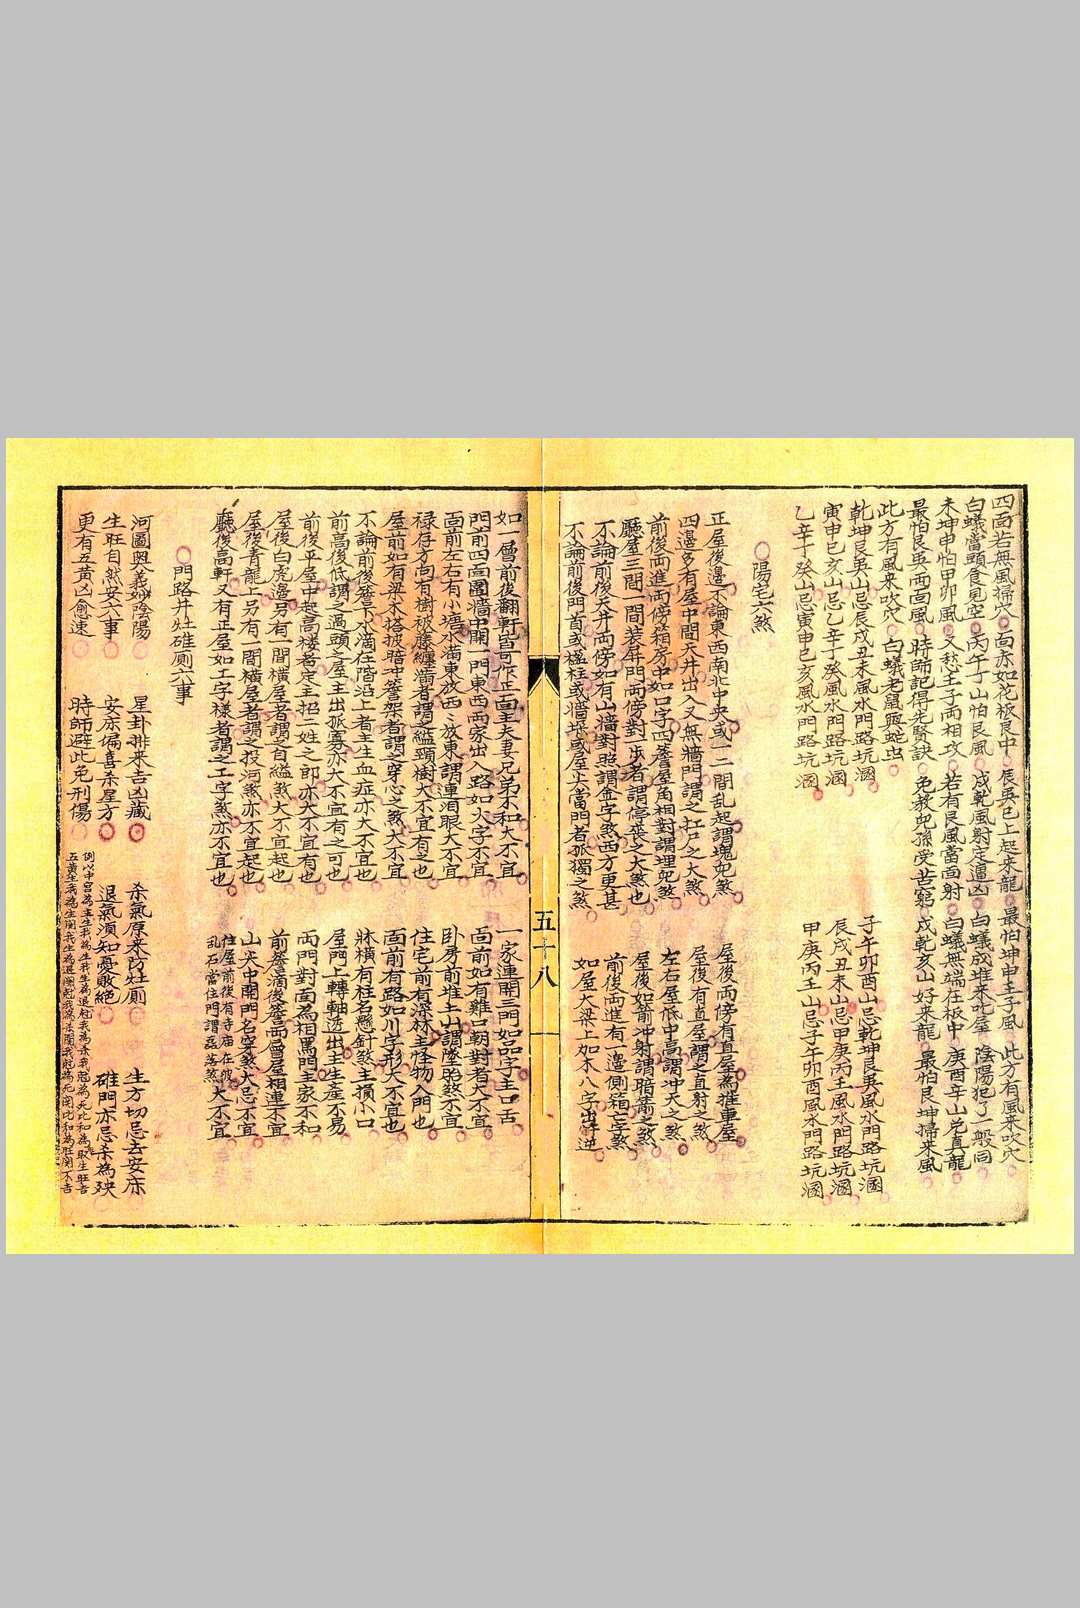 四面若無風掃穴 面亦如花板良中 辰巽巳上起來龍 最怕坤申壬子風 此方有風來吹穴
白蟻當頭食見空 丙午丁山怕艮風 戌乾風射定遭凶 白蟻成堆來吃屋 陰陽犯了一般同
未坤申怕甲卯風 又愁壬子両相攻 若有艮風當面射 白蟻無端在板中 庚酉辛山兌真龍
最怕艮巽両面風 時師記得先賢訣 免教兒孫受苦窮 戌乾亥山好來龍 最怕艮坤掃來風
此方有風來吹穴 白蟻老鼠興蛇虫
乾坤艮巽山忌辰戌丑未風水門路坑涵 子午卯酉山忌乾坤艮巽風水門路坑涵
寅申巳亥山忌乙辛丁癸風水門路坑涵 辰戌丑未山忌甲庚丙壬風水門路坑涵
乙辛丁癸山忌寅申巳亥風水門路坑涵 甲庚丙壬山忌子午卯酉風水門路坑涵
陽宅六煞
正屋後邊不論東西南北中央或一二間乱起謂塊兒煞 屋後両傍有直屋為推車屋
四邊多有屋中間天井出入又無牆門謂之扛尸之大煞 屋後有直屋謂之直射之煞
前後両進両傍箱房中如口字四簷屋角相對謂埋兒煞 左右屋低中高謂冲天之煞
廳屋三間一間裝屏門両傍對一步者謂停喪之大煞也 屋後如箭冲射謂暗箭之煞
不論前後天井両傍如有山牆對照謂金字煞西方更甚 前後両進有一邊側箱亡字煞
不論前後門首或楹柱或牆垛或屋尖當門者孤獨之煞 如屋大梁上如木八字出忤逆
五十八
如一層前後翻軒皆可作正面主夫妻兄弟不和大不宜 一家連開三門如品字主口舌
門前四面圍牆中開一門東西両家出入路如火字不宜 面前如有雞口朝對者大不宜
面前左右有小塘水滿東放西西放東謂連泪眼大不宜 卧房前堆土山謂墜胎煞不宜
祿存方向有樹被藤纏滿者謂之縊頸樹大不宜有之也 住宅前有深林主怪物入門也
屋前如有梁木搭披暗冲簷架者謂之穿心之煞大不宜 面前有路如川字形大不宜也
不論前後簷下水滴在階沿上者主生血症亦大不宜也 牀橫有柱名懸針煞主損小口
前高後低謂之過頭之屋主出孤寡亦大不宜有之可也 屋門上轉軸透出主生產不易
前後平屋中起高樓者定主招二姓之郎亦大不宜有也 両門對面為相罵門主家不和
屋後白虎邊另有一間橫屋者謂之自縊煞大不宜起也 前簷滴後簷而曾屋相連不宜
屋後青龍上另有一間橫屋者謂之投河煞亦不宜起也 山尖中開門名穿煞大忌不宜
廳後高軒又有正屋如工字樣者謂之工字煞亦不宜也 住屋前後有寺庙在彼大不宜
乱石當住門謂磊落煞
門路井灶碓厠六事
河圖奥義妙陰陽 星卦排來吉凶藏 杀氣原來防灶厠 生方切忌去安床
生旺自然安六事 安床偏喜杀星方 退氣須知憂敗絕 碓門亦忌杀為殃
更有五黃凶愈速 時師避此免刑傷